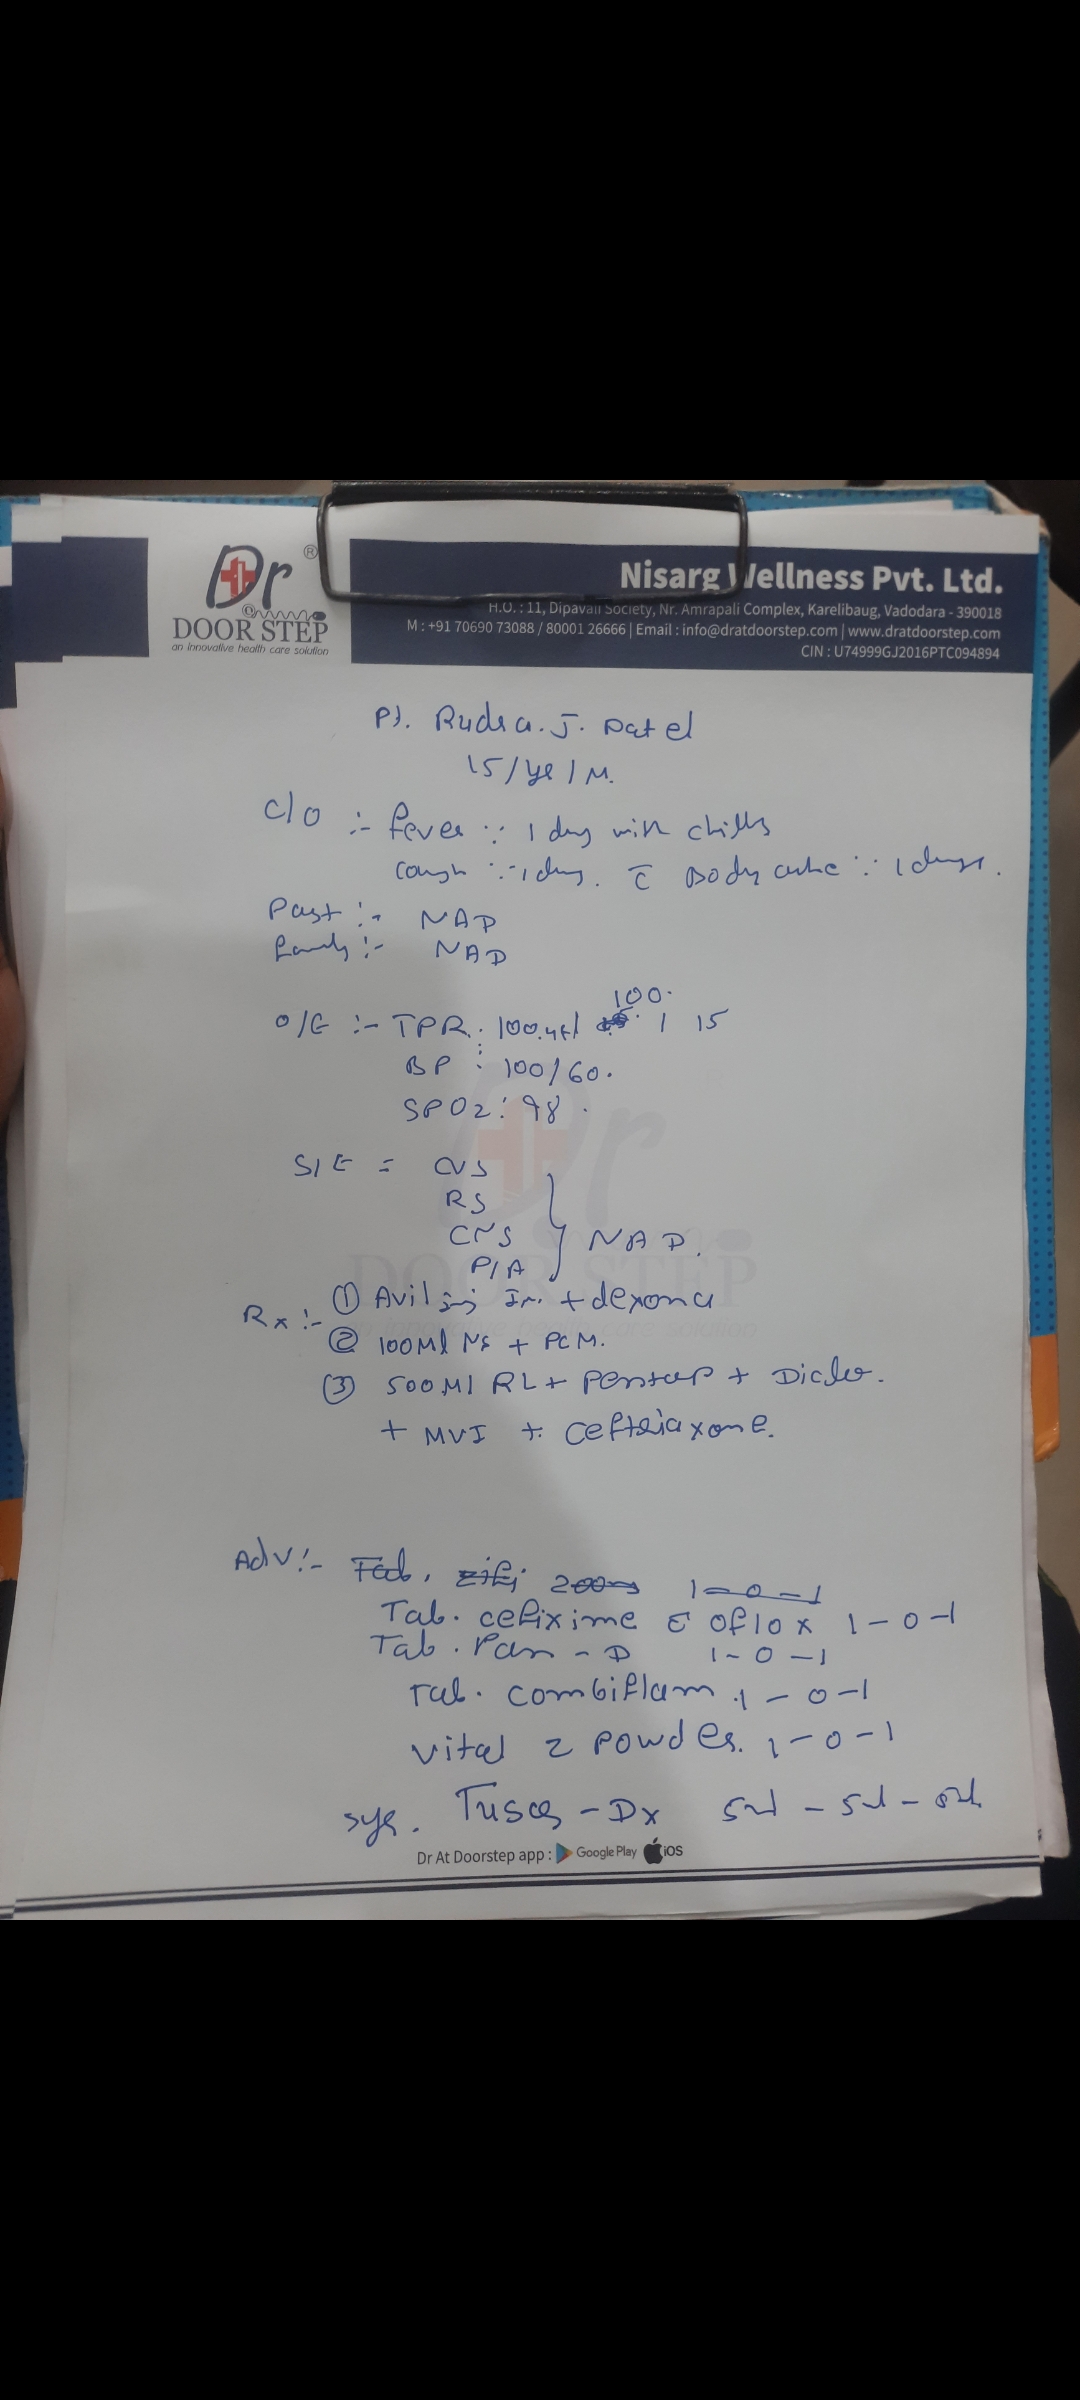 Dr ®
DOOR STEP
an innovative health care solution
Nisarg Wellness Pvt. Ltd.
H.O. : 11, Dipavali Society, Nr. Amrapali Complex, Karelibaug, Vadodara - 390018
M : +91 70690 73088 / 80001 26666 | Email : info@dratdoorstep.com | www.dratdoorstep.com
CIN : U74999GJ2016PTC094894
Pt. Rudra. J. Patel
15/yr/M.
C/O :- fever ∵ 1 day with chills
cough ∵ 1 day. c̄ Body ache ∵ 1 days.
Past :- NAD
Family :- NAD
100.
O/E :- TPR : 100.4f/ / 15
BP : 100/60.
SPO2 : 98.
S/E = CVS
RS
CNS } NAD.
P/A
Rx :- ① Avil inj Im. + dexona
② 100Ml NS + PCM.
③ 500Ml RL + Pentap + Diclo.
+ MVI + Ceftriaxone.
Adv :- Tab. Zifi 200 1-0-1
Tab. cefixime c̄ oflox 1-0-1
Tab. Pan-D 1-0-1
Tab. combiflam 1-0-1
Vital Z powder. 1-0-1
syr. -Dx 5ml - 5ml - 5ml
Dr At Doorstep app : Google Play iOS